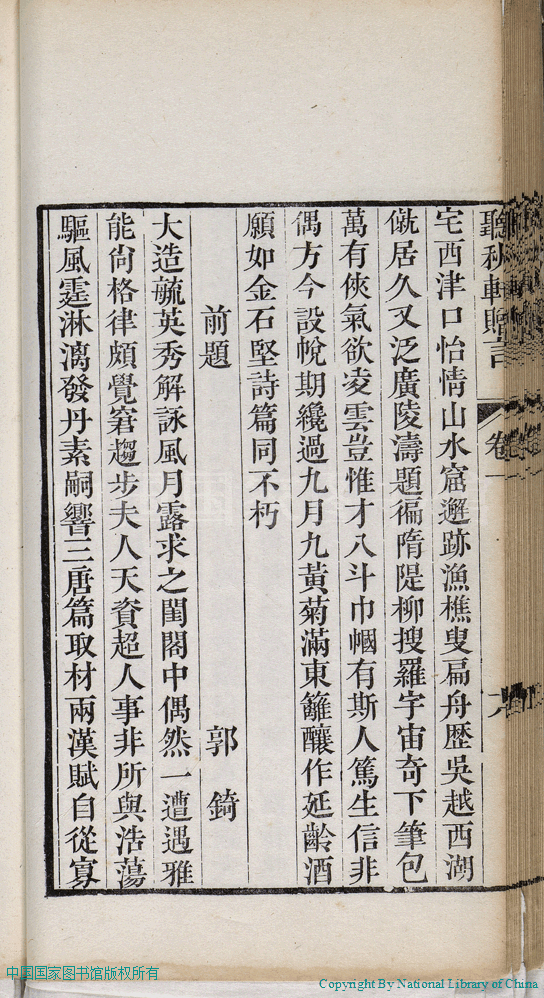 聽秋軒贈言 卷一
宅西津口怡情山水窟邂跡漁樵叟扁舟歷吳越西湖
僦居久又泛廣陵濤題徧隋隄柳搜羅宇宙奇下筆包
萬有俠氣欲凌雲豈惟才八斗巾幗有斯人篤生信非
偶方今設帨期纔過九月九黃菊滿東籬釀作延齡酒
願如金石堅詩篇同不朽
前題 郭錡
大造毓英秀解詠風月露求之閨閣中偶然一遭遇雅
能尚格律頗覺窘趨步夫人天資超人事非所與浩蕩
驅風霆淋漓發丹素嗣響三唐篇取材兩漢賦自從寡
中国国家图书馆版权所有
Copyright By National Library of China